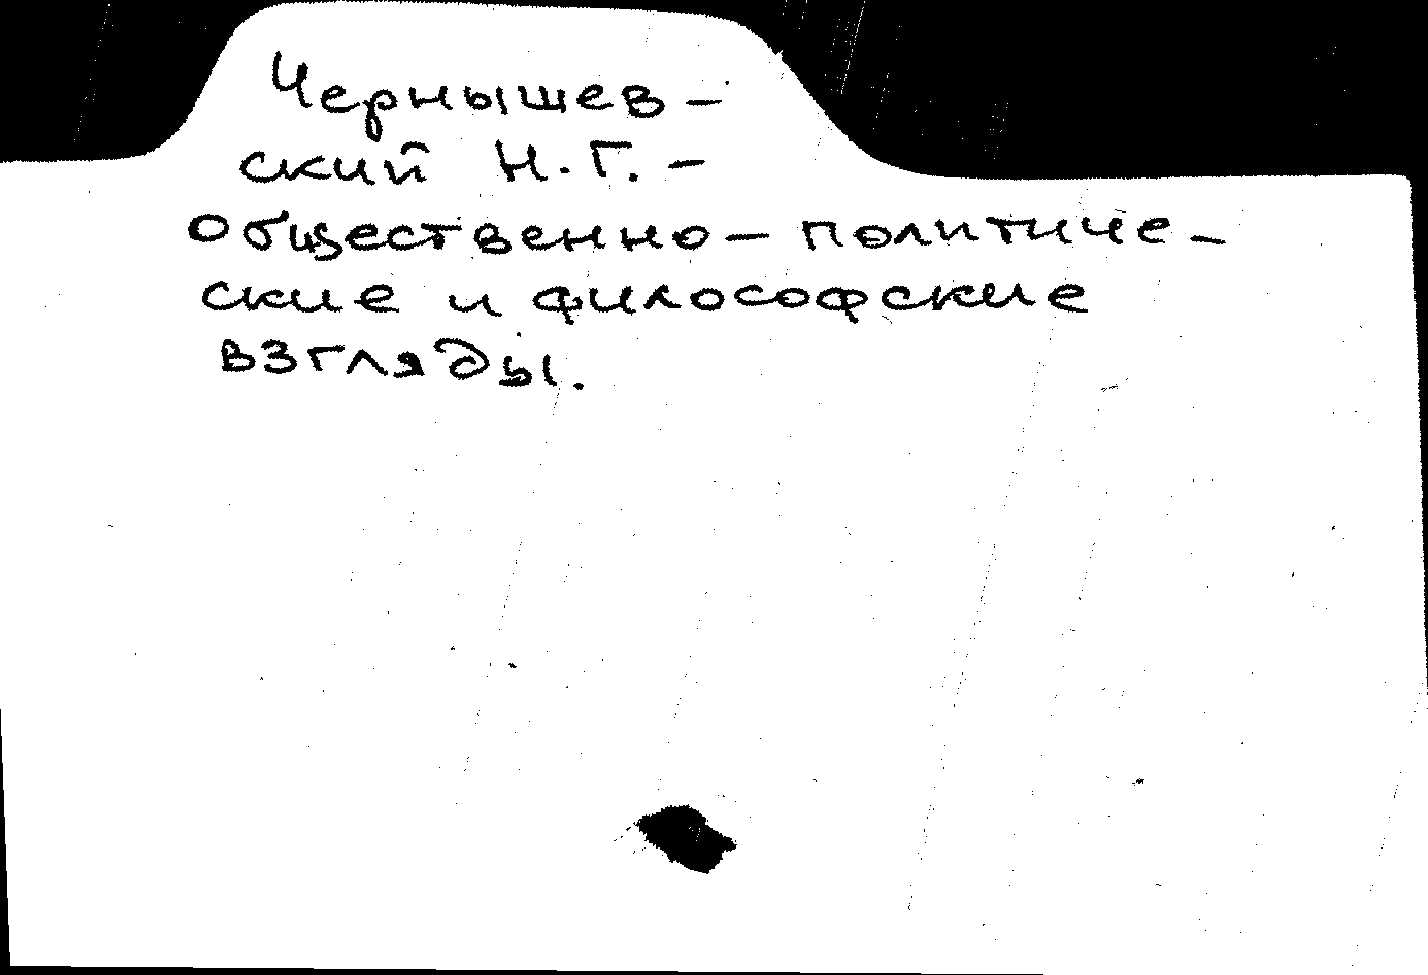 Чернышев-
ский Н.Г. -
общественно-политиче-
ские и философские
взгляды.